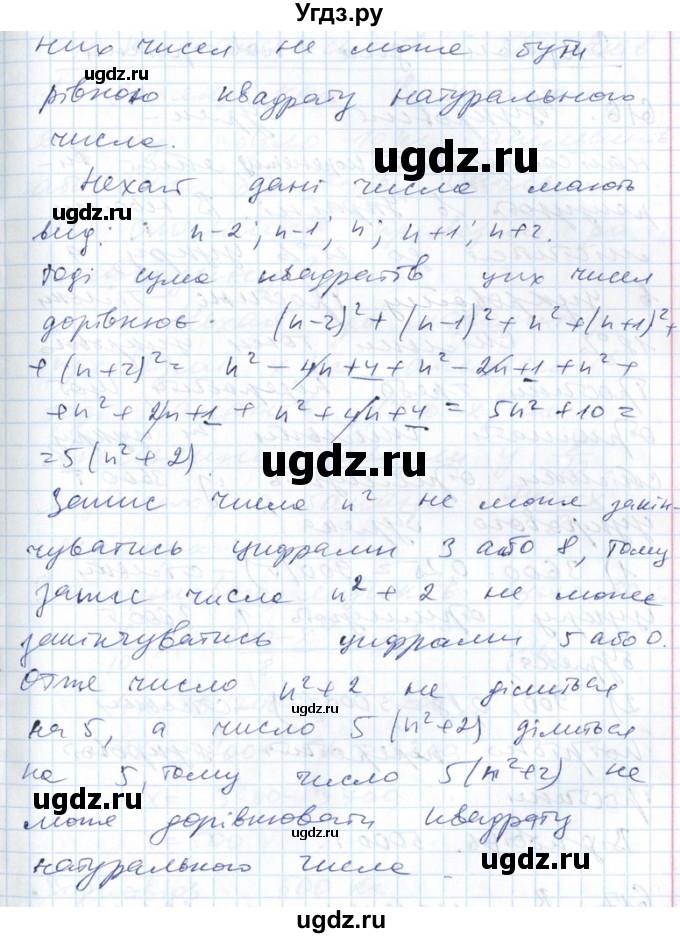 Угдз.ру
них чисел не може бути
рівною квадрату натурального
числа.
Нехай дані числа мають
вид: n-2; n-1; n; n+1; n+2.
Тоді сума квадратів цих чисел
дорівнює. (n-2)² + (n-1)² + n² + (n+1)² +
+ (n+2)² = n² - 4n + 4 + n² - 2n + 1 + n² +
+ n² + 2n + 1 + n² + 4n + 4 = 5n² + 10 =
= 5(n² + 2)
Запис числа n² не може закін-
чуватись цифрами 3 або 8, тому
запис числа n² + 2 не може
закінчуватись цифрами 5 або 0.
Отже число n² + 2 не ділиться
на 5, а число 5(n²+2) ділиться
на 5, тому число 5(n²+2) не
може дорівнювати квадрату
натурального числа
ugdz.ru
ugdz.ru
ugdz.ru
ugdz.ru
ugdz.ru
ugdz.ru
ugdz.ru
ugdz.ru
ugdz.ru
ugdz.ru
ugdz.ru
ugdz.ru
ugdz.ru